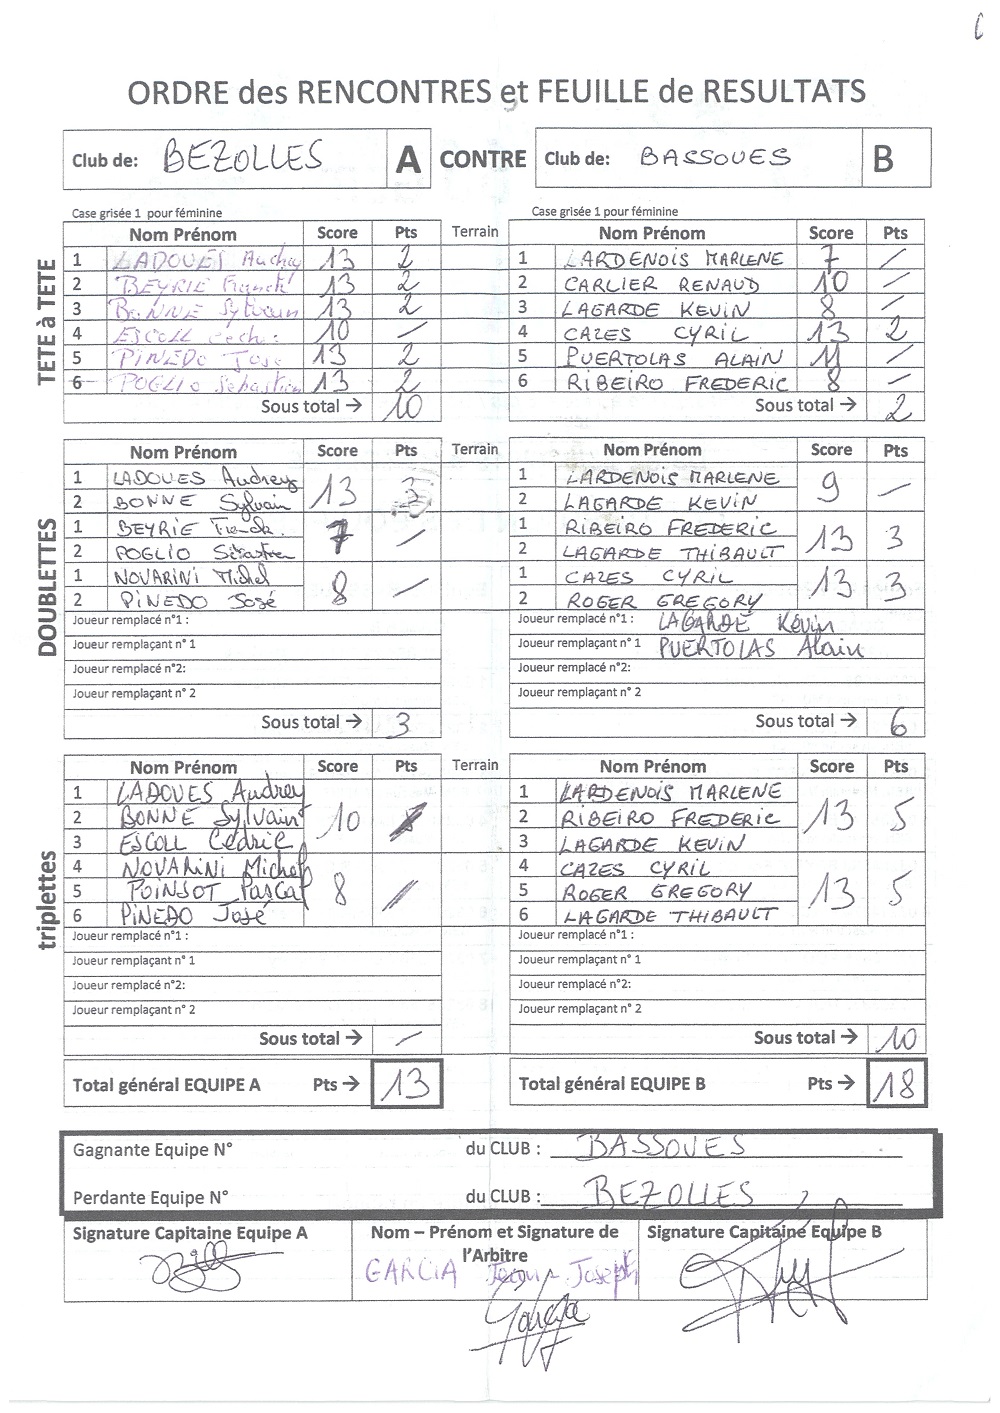 ORDRE des RENCONTRES et FEUILLE de RESULTATS
Club de: BEZOLLES A CONTRE Club de: BASSOUES B
Case grisée 1 pour féminine Case grisée 1 pour féminine
TETE à TETE
Nom Prénom Score Pts Terrain Nom Prénom Score Pts
1 LADOUES Audrey 13 2 1 LARDENOIS MARLENE 7 —
2 BEYRIE Franck 13 2 2 CARLIER RENAUD 10 —
3 BONNE Sylvain 13 2 3 LAGARDE KEVIN 8 —
4 ESCOLL 10 — 4 CAZES CYRIL 13 2
5 PINEDO José 13 2 5 PUERTOLAS ALAIN 11 —
6 POGLIO Sébastien 13 2 6 RIBEIRO FREDERIC 8 —
Sous total → 10 Sous total → 2
DOUBLETTES
Nom Prénom Score Pts Terrain Nom Prénom Score Pts
1 LADOUES Audrey 13 3 1 LARDENOIS MARLENE 9 —
2 BONNE Sylvain 2 LAGARDE KEVIN
1 BEYRIE 7 — 1 RIBEIRO FREDERIC 13 3
2 POGLIO Sébastien 2 LAGARDE THIBAULT
1 NOVARINI Michel 8 — 1 CAZES CYRIL 13 3
2 PINEDO José 2 ROGER GREGORY
Joueur remplacé n°1 : Joueur remplacé n°1 : LAGARDE Kévin
Joueur remplaçant n° 1 Joueur remplaçant n° 1 PUERTOLAS Alain
Joueur remplacé n°2: Joueur remplacé n°2:
Joueur remplaçant n° 2 Joueur remplaçant n° 2
Sous total → 3 Sous total → 6
triplettes
Nom Prénom Score Pts Terrain Nom Prénom Score Pts
1 LADOUES Audrey 10 1 LARDENOIS MARLENE 13 5
2 BONNE Sylvain 2 RIBEIRO FREDERIC
3 ESCOLL Cédric 3 LAGARDE KEVIN
4 NOVARINI Michel 8 — 4 CAZES CYRIL 13 5
5 POINSOT Pascal 5 ROGER GREGORY
6 PINEDO José 6 LAGARDE THIBAULT
Joueur remplacé n°1 : Joueur remplacé n°1 :
Joueur remplaçant n° 1 Joueur remplaçant n° 1
Joueur remplacé n°2: Joueur remplacé n°2:
Joueur remplaçant n° 2 Joueur remplaçant n° 2
Sous total → — Sous total → 10
Total général EQUIPE A Pts → 13 Total général EQUIPE B Pts → 18
Gagnante Equipe N° du CLUB : BASSOUES
Perdante Equipe N° du CLUB : BEZOLLES
Signature Capitaine Equipe A Nom – Prénom et Signature de l'Arbitre Signature Capitaine Equipe B
GARCIA Joseph